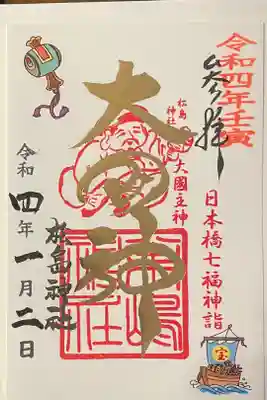 令和四年壬寅
奉拝
日本橋七福神詣
松島神社
大國主神
大国神
松島神社
令和四年一月二日
松嶋神社
宝